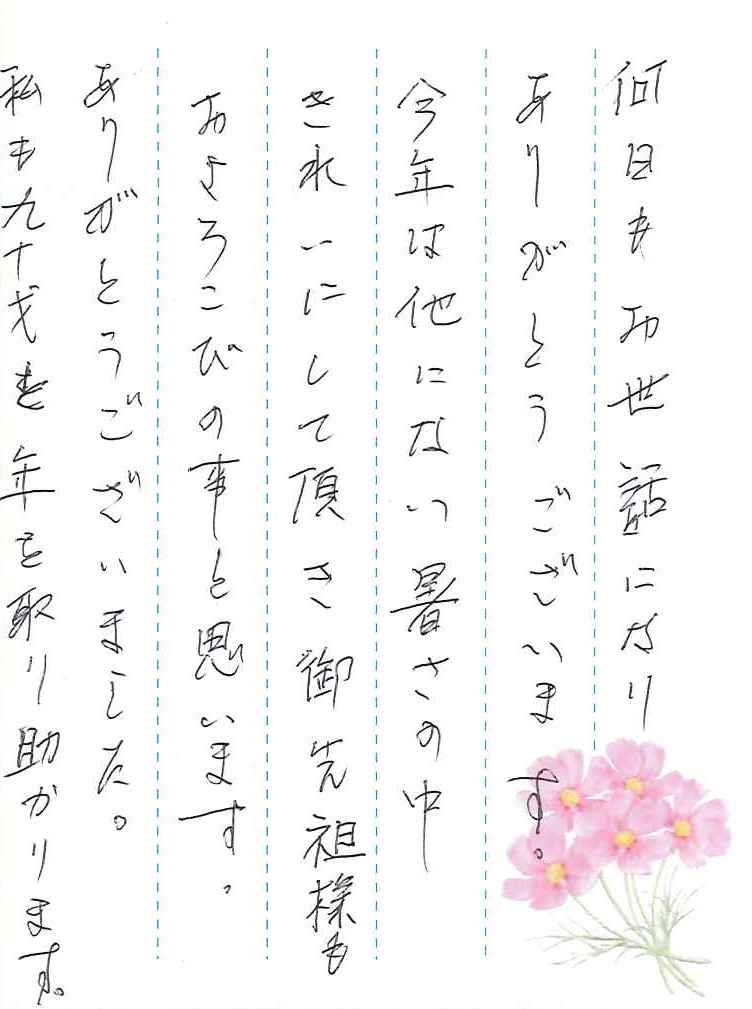 何日もお世話になり
ありがとうございます。
今年は他にない暑さの中
きれいにして頂き御先祖様も
およろこびの事と思います。
ありがとうございました。
私も九十才を年を取り助かります。